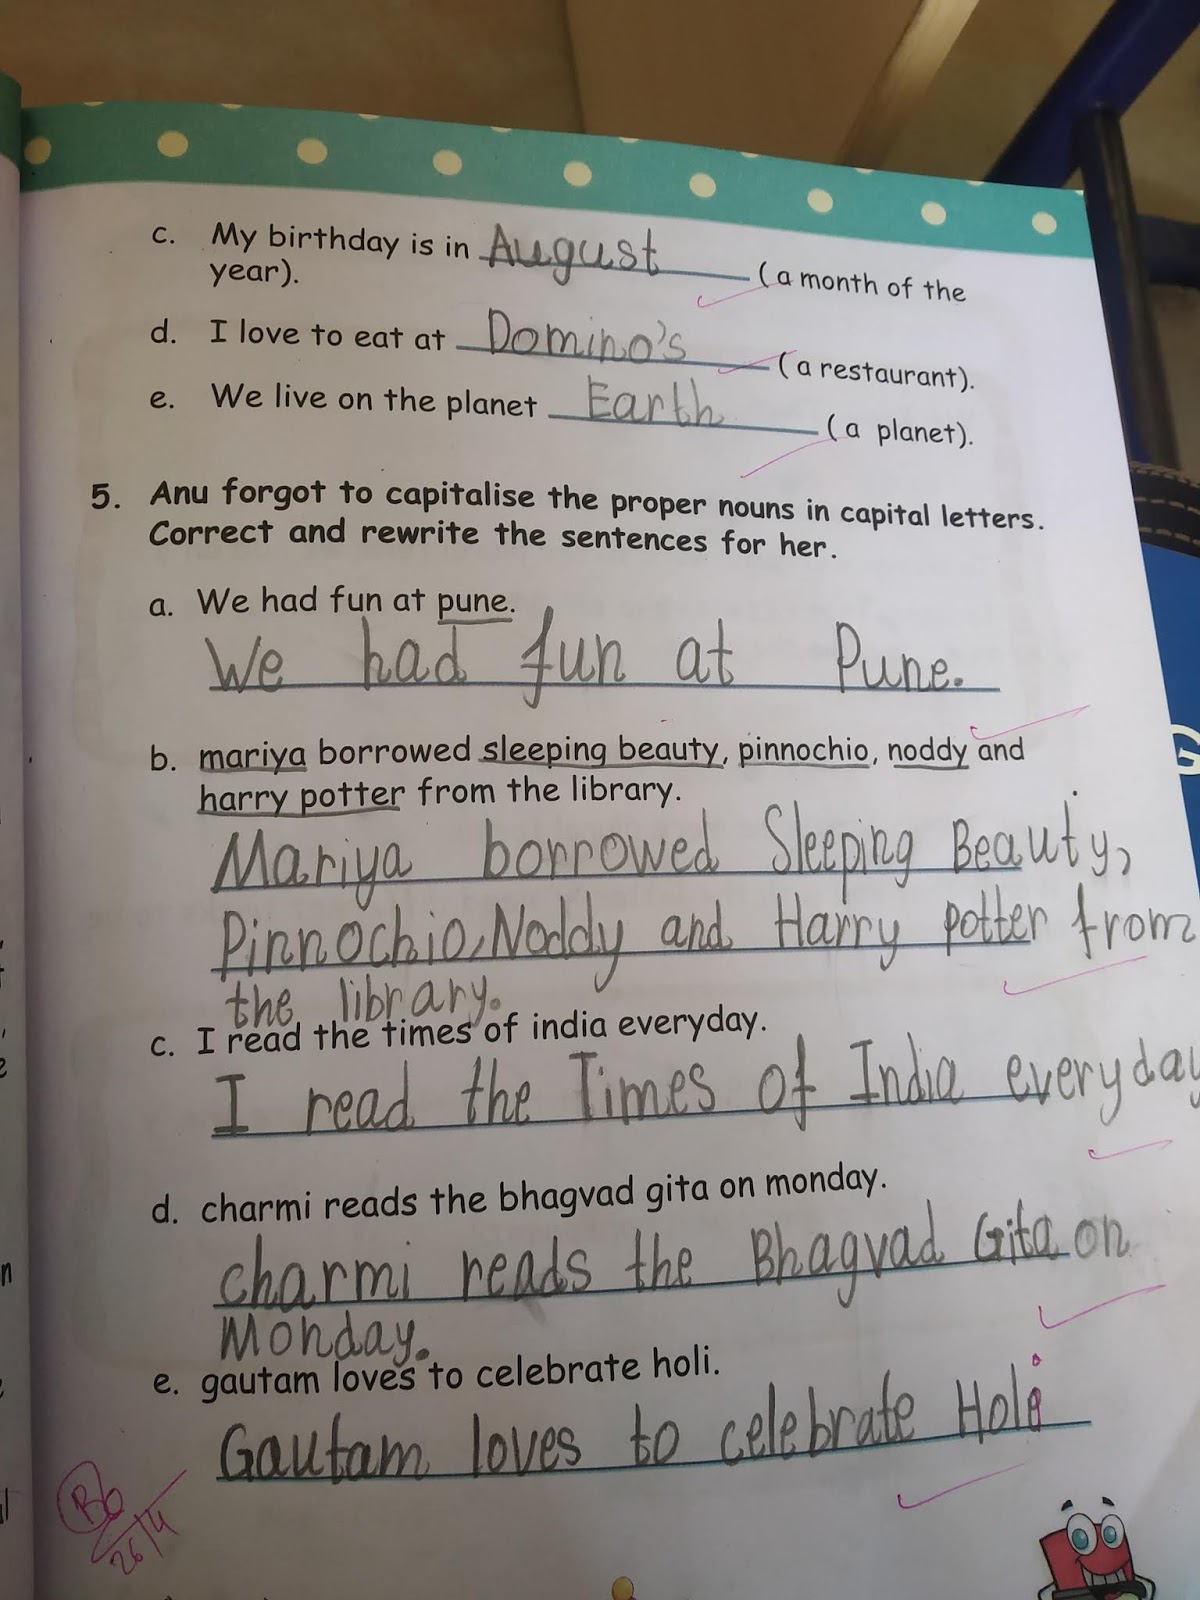 c. My birthday is in August (a month of the
year).
d. I love to eat at Domino's (a restaurant).
e. We live on the planet Earth (a planet).
5. Anu forgot to capitalise the proper nouns in capital letters.
Correct and rewrite the sentences for her.
a. We had fun at pune.
We had fun at Pune.
b. mariya borrowed sleeping beauty, pinnochio, noddy and
harry potter from the library.
Mariya borrowed Sleeping Beauty,
Pinnochio, Noddy and Harry potter from
the library.
c. I read the times of india everyday.
I read the Times of India everyday
d. charmi reads the bhagvad gita on monday.
charmi reads the Bhagvad Gita on
Monday.
e. gautam loves to celebrate holi.
Gautam loves to celebrate Holi
26/4